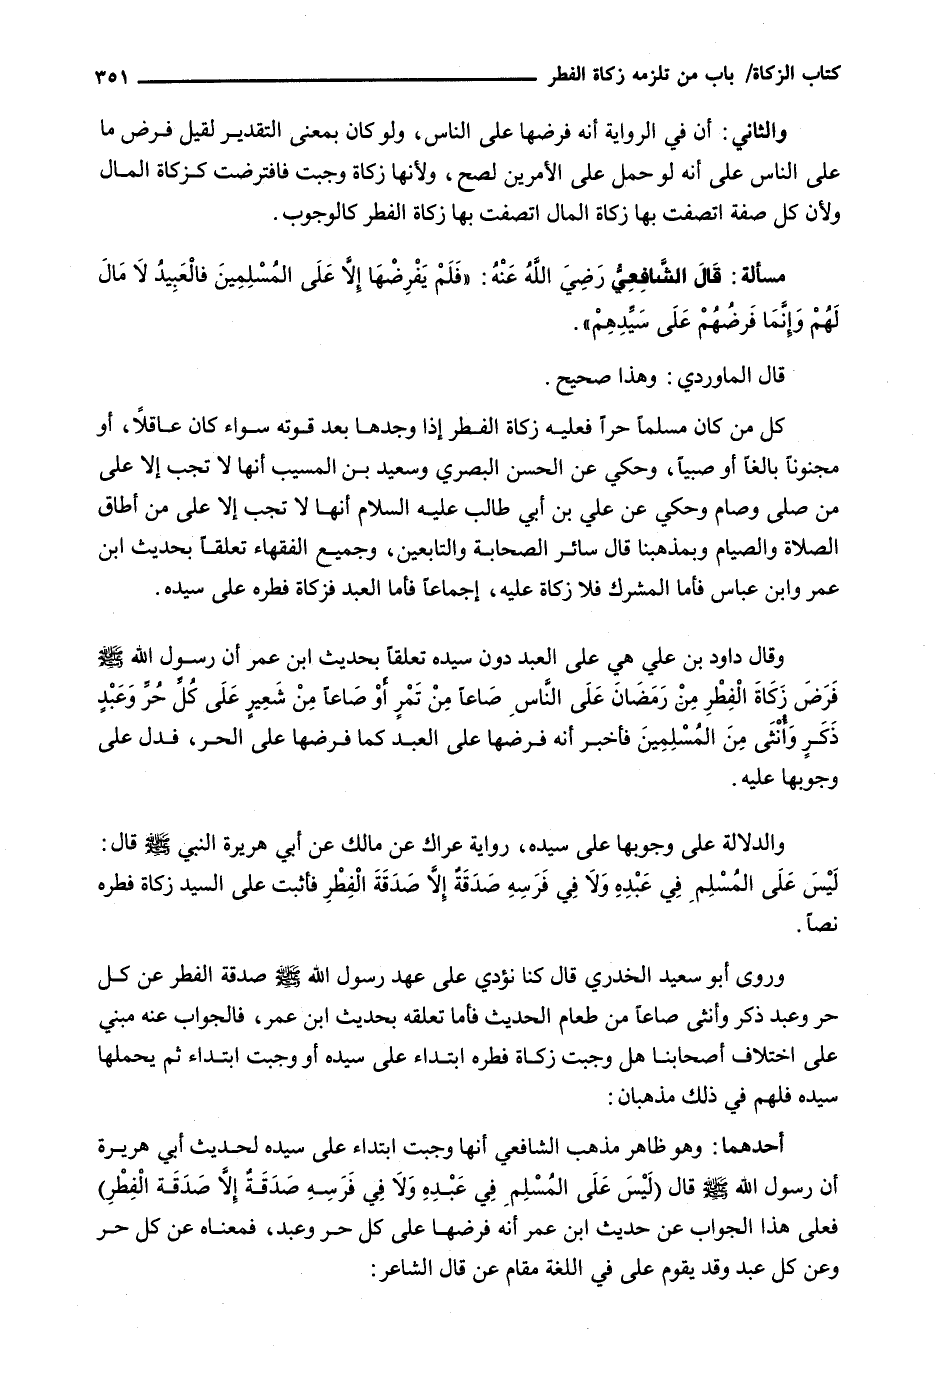 كتاب الزكاة/ باب من تلزمه زكاة الفطر ٣٥١
والثاني: أن في الرواية أنه فرضها على الناس، ولو كان بمعنى التقدير لقيل فرض ما
على الناس على أنه لو حمل على الأمرين لصح، ولأنها زكاة وجبت فافترضت كزكاة المال
ولأن كل صفة اتصفت بها زكاة المال اتصفت بها زكاة الفطر كالوجوب.
مسألة: قَالَ الشَّافِعِيُّ رَضِيَ اللَّهُ عَنْهُ: «فَلَمْ يَفْرِضْهَا إِلَّا عَلَى المُسْلِمِينَ فالْعَبِيدُ لَا مَالَ
لَهُمْ وَإِنَّمَا فَرضُهُمْ عَلَى سَيِّدِهِمْ».
قال الماوردي: وهذا صحيح.
كل من كان مسلماً حراً فعليه زكاة الفطر إذا وجدها بعد قوته سواء كان عاقلاً، أو
مجنوناً بالغاً أو صبياً، وحكي عن الحسن البصري وسعيد بن المسيب أنها لا تجب إلا على
من صلى وصام وحكي عن علي بن أبي طالب عليه السلام أنها لا تجب إلا على من أطاق
الصلاة والصيام وبمذهبنا قال سائر الصحابة والتابعين، وجميع الفقهاء تعلقاً بحديث ابن
عمر وابن عباس فأما المشرك فلا زكاة عليه، إجماعاً فأما العبد فزكاة فطره على سيده.
وقال داود بن علي هي على العبد دون سيده تعلقاً بحديث ابن عمر أن رسول الله ﷺ
فَرَضَ زَكَاةَ الْفِطْرِ مِنْ رَمَضَانَ عَلَى النَّاسِ صَاعاً مِنْ تَمْرٍ أَوْ صَاعاً مِنْ شَعِيرٍ عَلَى كُلِّ حُرٍّ وَعَبْدٍ
ذَكَرٍ وَأُنْثَى مِنَ المُسْلِمِينَ فأخبر أنه فرضها على العبد كما فرضها على الحر، فدل على
وجوبها عليه.
والدلالة على وجوبها على سيده، رواية عراك عن مالك عن أبي هريرة النبي ﷺ قال:
لَيْسَ عَلَى المُسْلِمِ فِي عَبْدِهِ وَلَا فِي فَرَسِهِ صَدَقَةٌ إِلَّا صَدَقَةَ الْفِطْرِ فأثبت على السيد زكاة فطره
نصاً.
وروى أبو سعيد الخدري قال كنا نؤدي على عهد رسول الله ﷺ صدقة الفطر عن كل
حر وعبد ذكر وأنثى صاعاً من طعام الحديث فأما تعلقه بحديث ابن عمر، فالجواب عنه مبني
على اختلاف أصحابنا هل وجبت زكاة فطره ابتداء على سيده أو وجبت ابتداء ثم يحملها
سيده فلهم في ذلك مذهبان:
أحدهما: وهو ظاهر مذهب الشافعي أنها وجبت ابتداء على سيده لحديث أبي هريرة
أن رسول الله ﷺ قال (لَيْسَ عَلَى المُسْلِمِ فِي عَبْدِهِ وَلَا فِي فَرَسِهِ صَدَقَةٌ إِلَّا صَدَقَةَ الْفِطْرِ)
فعلى هذا الجواب عن حديث ابن عمر أنه فرضها على كل حر وعبد، فمعناه عن كل حر
وعن كل عبد وقد يقوم على في اللغة مقام عن قال الشاعر: